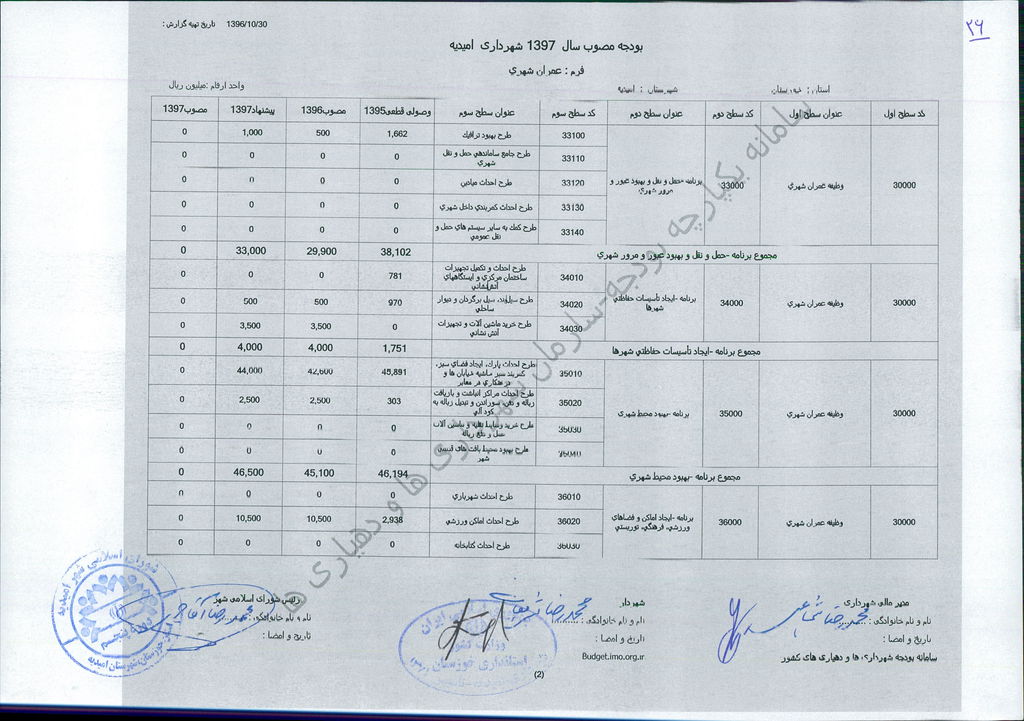 ۲۶
تاریخ تهیه گزارش : 1396/10/30
بودجه مصوب سال 1397 شهرداری امیدیه
فرم : عمران شهري
استان : خوزستان شهرستان : امیدیه واحد ارقام :میلیون ریال
کد سطح اول عنوان سطح اول کد سطح دوم عنوان سطح دوم کد سطح سوم عنوان سطح سوم وصولی قطعی1395 مصوب1396 پیشنهاد1397 مصوب1397
30000 وظیفه عمران شهري 33000 برنامه -حمل و نقل و بهبود عبور و مرور شهري
33100 طرح بهبود ترافیك 1,662 500 1,000 0
33110 طرح جامع ساماندهي حمل و نقل شهري 0 0 0 0
33120 طرح احداث میادین 0 0 0 0
33130 طرح احداث کمربندي داخل شهري 0 0 0 0
33140 طرح کمك به سایر سیستم هاي حمل و نقل عمومي 0 0 0 0
مجموع برنامه -حمل و نقل و بهبود عبور و مرور شهري 38,102 29,900 33,000 0
30000 وظیفه عمران شهري 34000 برنامه -ایجاد تأسیسات حفاظتي شهرها
34010 طرح احداث و تکمیل تجهیزات ساختمان مرکزي و ایستگاههاي آتش‌نشاني 781 0 0 0
34020 طرح سیل‌بند، سیل برگردان و دیوار ساحلي 970 500 500 0
34030 طرح خرید ماشین آلات و تجهیزات آتش نشاني 0 3,500 3,500 0
مجموع برنامه -ایجاد تأسیسات حفاظتي شهرها 1,751 4,000 4,000 0
30000 وظیفه عمران شهري 35000 برنامه -بهبود محیط شهري
35010 طرح احداث پارك، ایجاد فضاي سبز، کمربند سبز حاشیه خیابان ها و درختکاري در معابر 45,891 42,600 44,000 0
35020 طرح احداث مراکز انباشت و بازیافت زباله و دفن، سوزاندن و تبدیل زباله به کود آلي 303 2,500 2,500 0
35030 طرح خرید وسایط نقلیه و ماشین آلات حمل و دفع زباله 0 0 0 0
35040 طرح بهبود محیط بافت هاي قدیمي شهر 0 0 0 0
مجموع برنامه -بهبود محیط شهري 46,194 45,100 46,500 0
30000 وظیفه عمران شهري 36000 برنامه -ایجاد اماکن و فضاهاي ورزشي، فرهنگي، توریستي
36010 طرح احداث شهربازي 0 0 0 0
36020 طرح احداث اماکن ورزشي 2,938 10,500 10,500 0
36030 طرح احداث کتابخانه 0 0 0 0
سامانه یکپارچه بودجه-سازمان شهرداری ها و دهیاری ها
مدیر مالی شهرداری شهردار رئیس شورای اسلامی شهر
نام و نام خانوادگی : محمدرضا نام و نام خانوادگی : محمدرضا نام و نام خانوادگی : محمدرضا
تاریخ و امضا : تاریخ و امضا : تاریخ و امضا :
سامانه بودجه شهرداری ها و دهیاری های کشور Budget.imo.org.ir
(2)
شورای اسلامی شهر امیدیه
دوره پنجم
خوزستان، شهرستان امیدیه
وزارت کشور
استانداری خوزستان